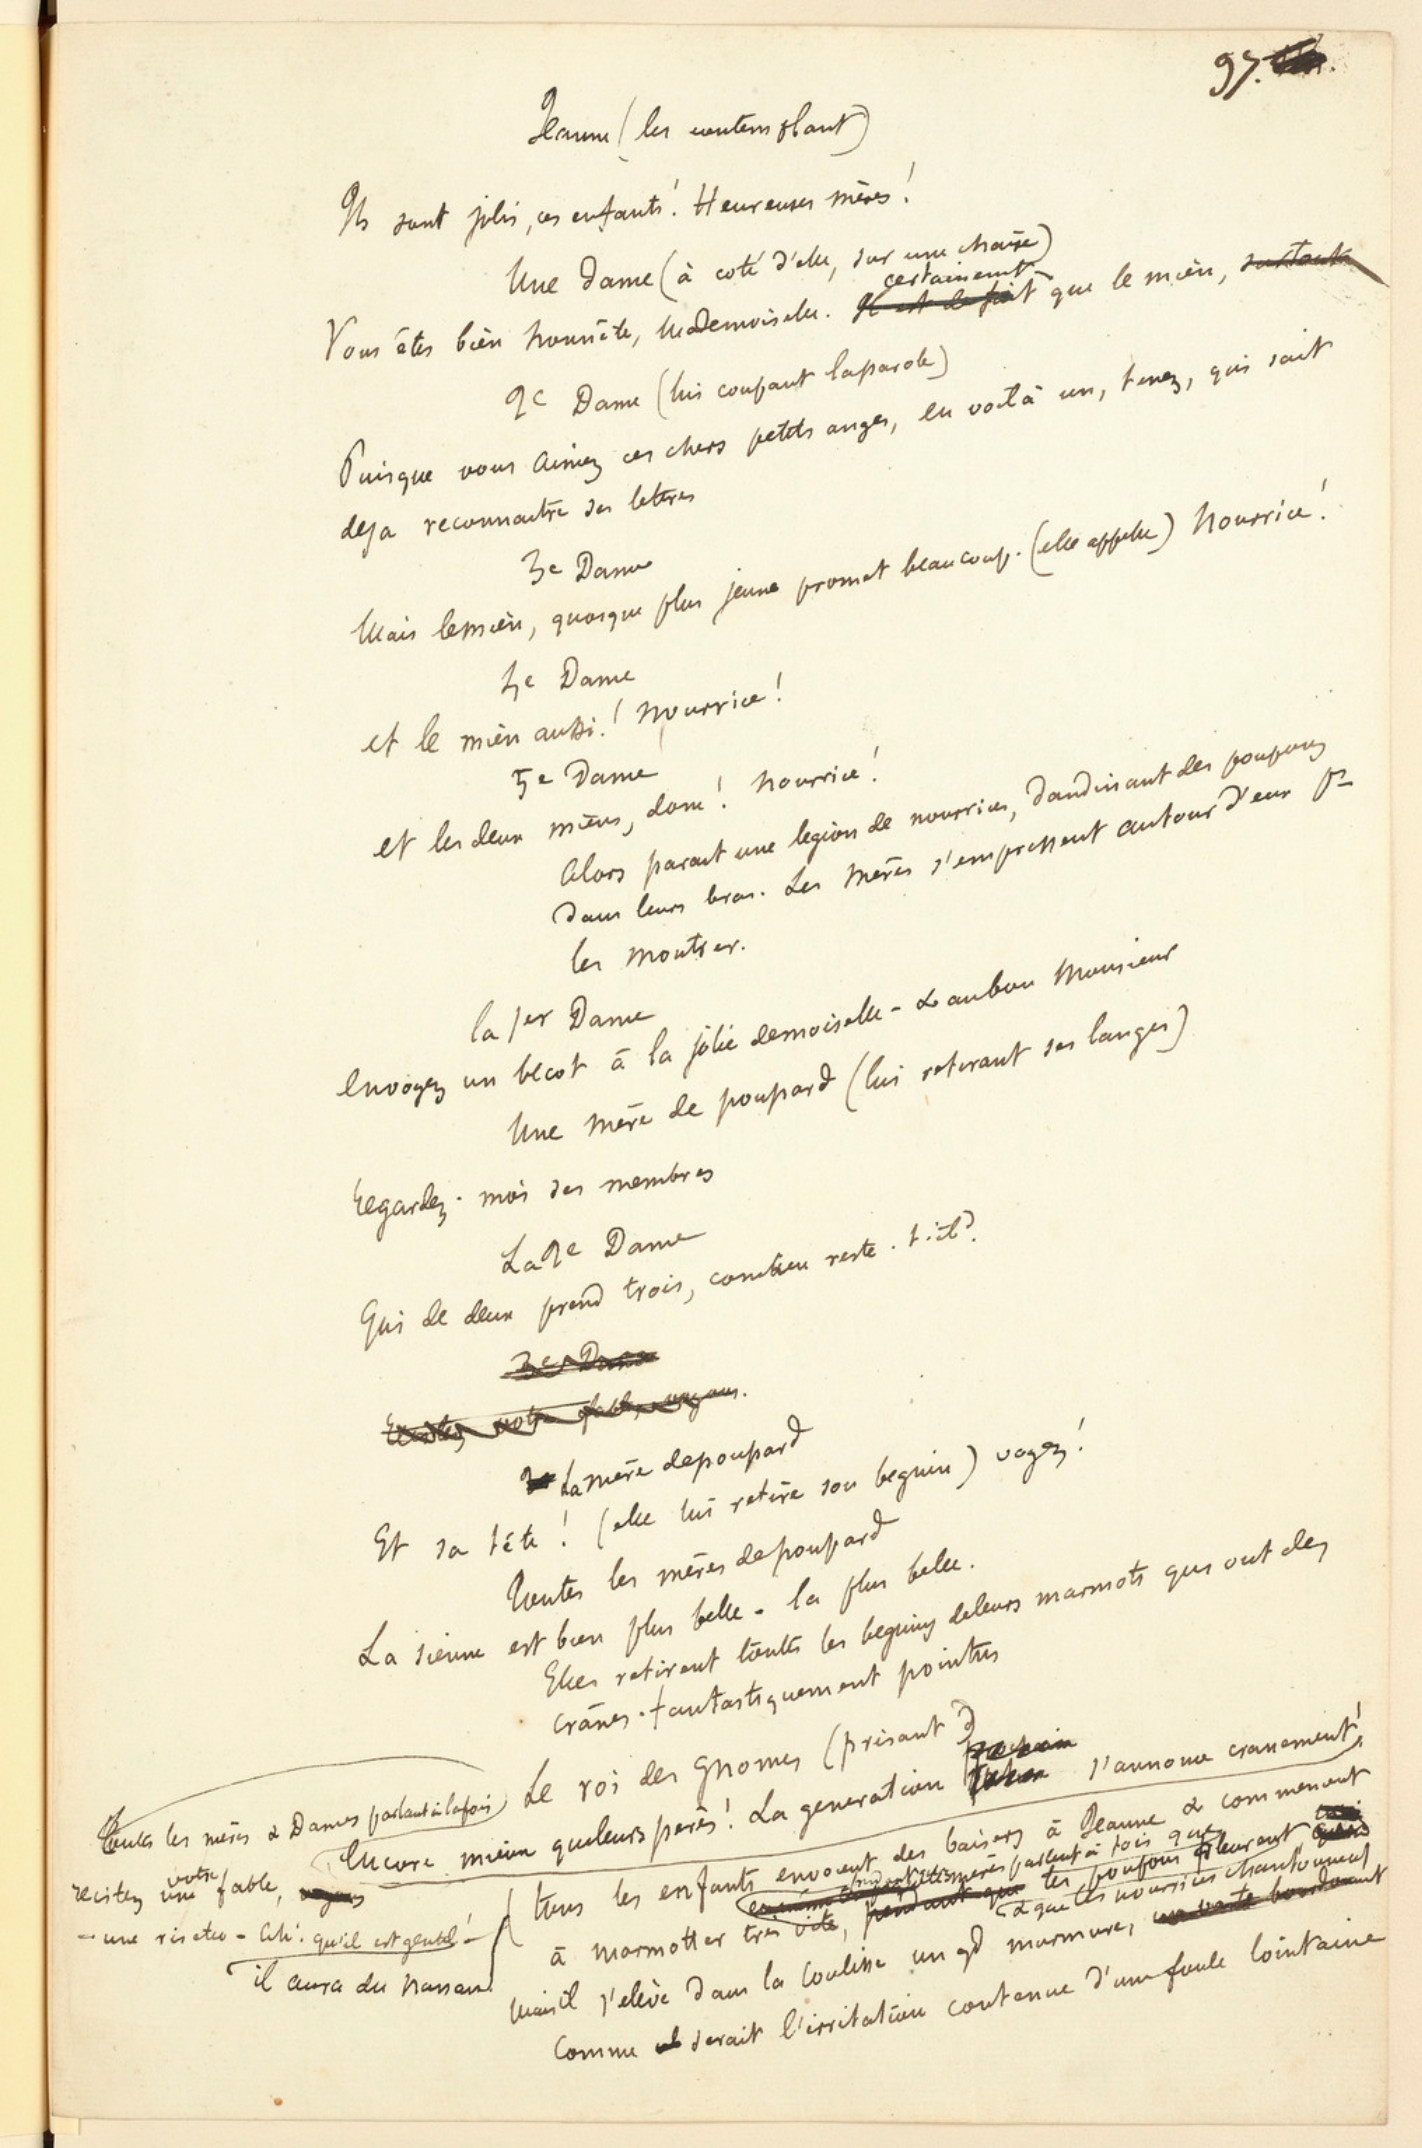 97.
Jeanne (les contemplant)
Ils sont jolis, ces enfants! Heureuses mères!
Une Dame (à coté d'elle, sur une chaise)
certainemt
Vous êtes bien honnête, Mademoiselle. Il est de fait que le mien, surtout
2e Dame (lui coupant la parole)
Puisque vous aimez ces chers petits anges, en voilà un, tenez, qui sait
deja reconnaitre ses lettres
3e Dame
Mais le mien, quoique plus jeune promet beaucoup. (elle appelle) Nourrice!
4e Dame
et le mien aussi! Nourrice!
5e Dame
et les deux miens, donc! Nourrice!
Alors parait une legion de nourrices, dandinant des poupons
dans leurs bras. Les Mères s'empressent autour d'eux pr
les montrer.
la 1er Dame
Envoyez un becot à la jolie demoiselle - & au bon Monsieur
Une mère de poupard (lui retirant ses langes)
Regardez-moi ses membres
La 2e Dame
Qui de deux prend trois, combien reste-t-il?
3e Dame
Recitez votre fable, voyons.
La mère de poupard
Et sa tête! (elle lui retire son beguin) voyez!
Toutes les mères de poupard
La sienne est bien plus belle - la plus belle.
Elles retirent toutes les beguins de leurs marmots qui ont des
crânes fantastiquement pointus
Le roi des Gnomes (prisant)
Encore mieux que leurs pères! La generation s'annonce cranement!
Toutes les mères & Dames parlant à la fois
votre
recitez une fable, voyons
- une risette - Ah! qu'il est gentil! -
il aura du nanan!
Tous les enfants envoient des baisers à Jeanne & commencent
à marmotter très vite, pendant que les poupons pleurent
& que les nourrices chantonnent
Mais il s'elève dans la coulisse un gd murmure, un vaste bourdonnant
comme serait l'irritation contenue d'une foule lointaine